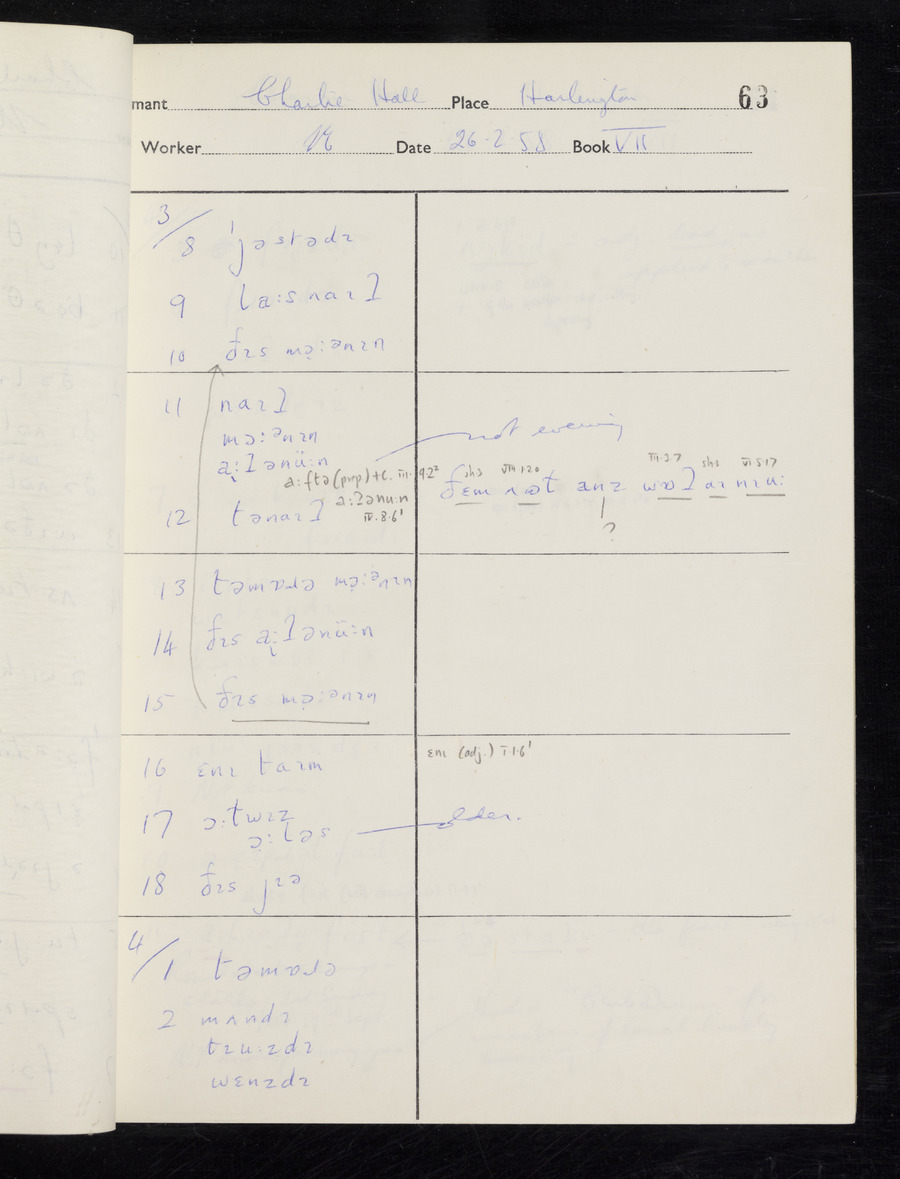 mant Charlie Hall Place Harlington 63
Worker Date 26·2·58 Book VII
3/8 ˈjəstədɪ
9 la:s naɪʔ
10 ðɪs mɔ̣:ᵊnɪn
11 naɪʔ
mɔ:ᵊnɪn
ɑ̣:ʔənü:n not evening
ɑ:ftə (prep) + c. III. 9.2²
ɑ:ʔənu:n
IV.8.6¹
12 tənaɪʔ
shs VIII.1.20 VII.2.7 shs VI.5.17
ðɛm ʌət anz wɒʔ aɪ nɪu:
?
13 təmɒɹə mɔ̣:ᵊnɪn
14 ðɪs ɑ̣:ʔənü:n
15 ðɪs mɔ̣:ənɪn
16 ɛnɪ taɪm ɛnɪ (adj.) I.1.6¹
17 ɔ:twɪz
ɔ:ləs older.
18 ðɪs jɪə
4/1 təmɒɹə
2 mʌndɪ
tɪu:zdɪ
wɛnzdɪ